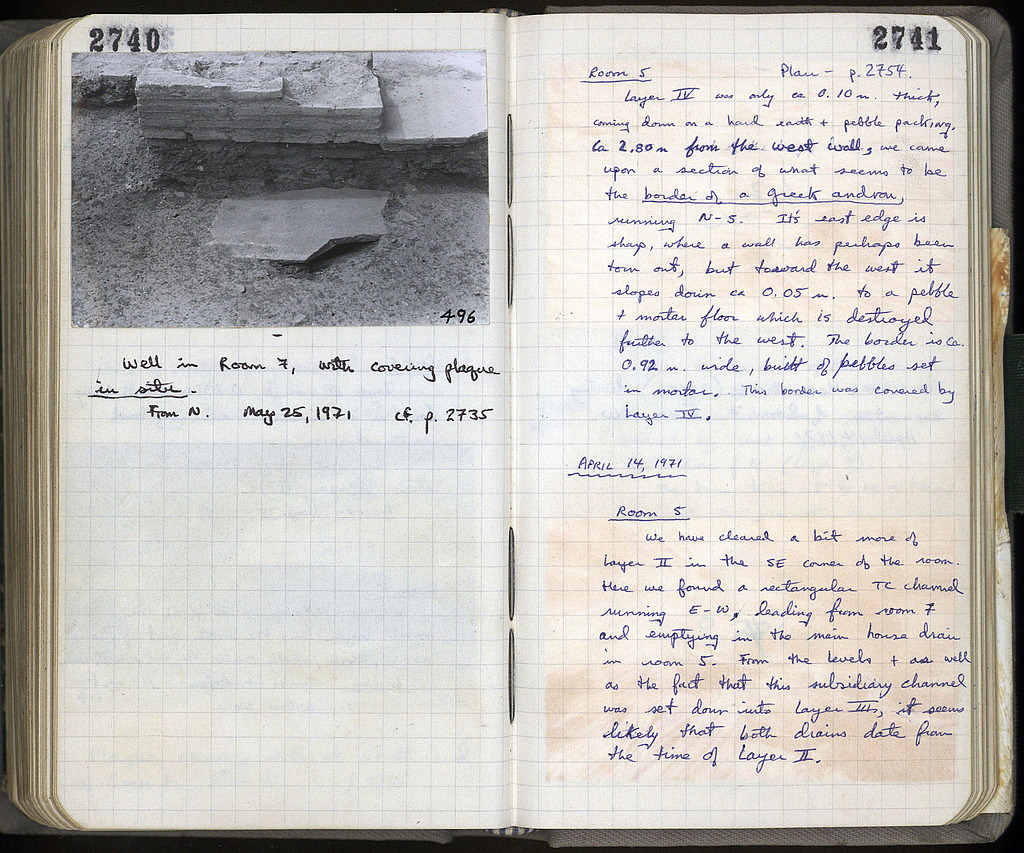 2740
496
Well in Room 7, with covering plaque
in situ.
From N. May 25, 1971 cf. p. 2735
2741
Room 5 Plan - p. 2754.
Layer IV was only ca 0.10 m. thick,
coming down on a hard earth + pebble packing.
Ca 2.80 m from the west wall, we came
upon a section of what seems to be
the border of a Greek andron,
running N-S. It's east edge is
sharp, where a wall has perhaps been
torn out, but toward the west it
slopes down ca 0.05 m. to a pebble
+ mortar floor which is destroyed
further to the west. The border is ca.
0.92 m. wide, built of pebbles set
in mortar. This border was covered by
Layer IV.
APRIL 14, 1971
Room 5
We have cleared a bit more of
Layer II in the SE corner of the room.
Here we found a rectangular TC channel
running E-W, leading from room 7
and emptying in the main house drain
in room 5. From the levels + as well
as the fact that this subsidiary channel
was set down into Layer III, it seems
likely that both drains date from
the time of Layer II.